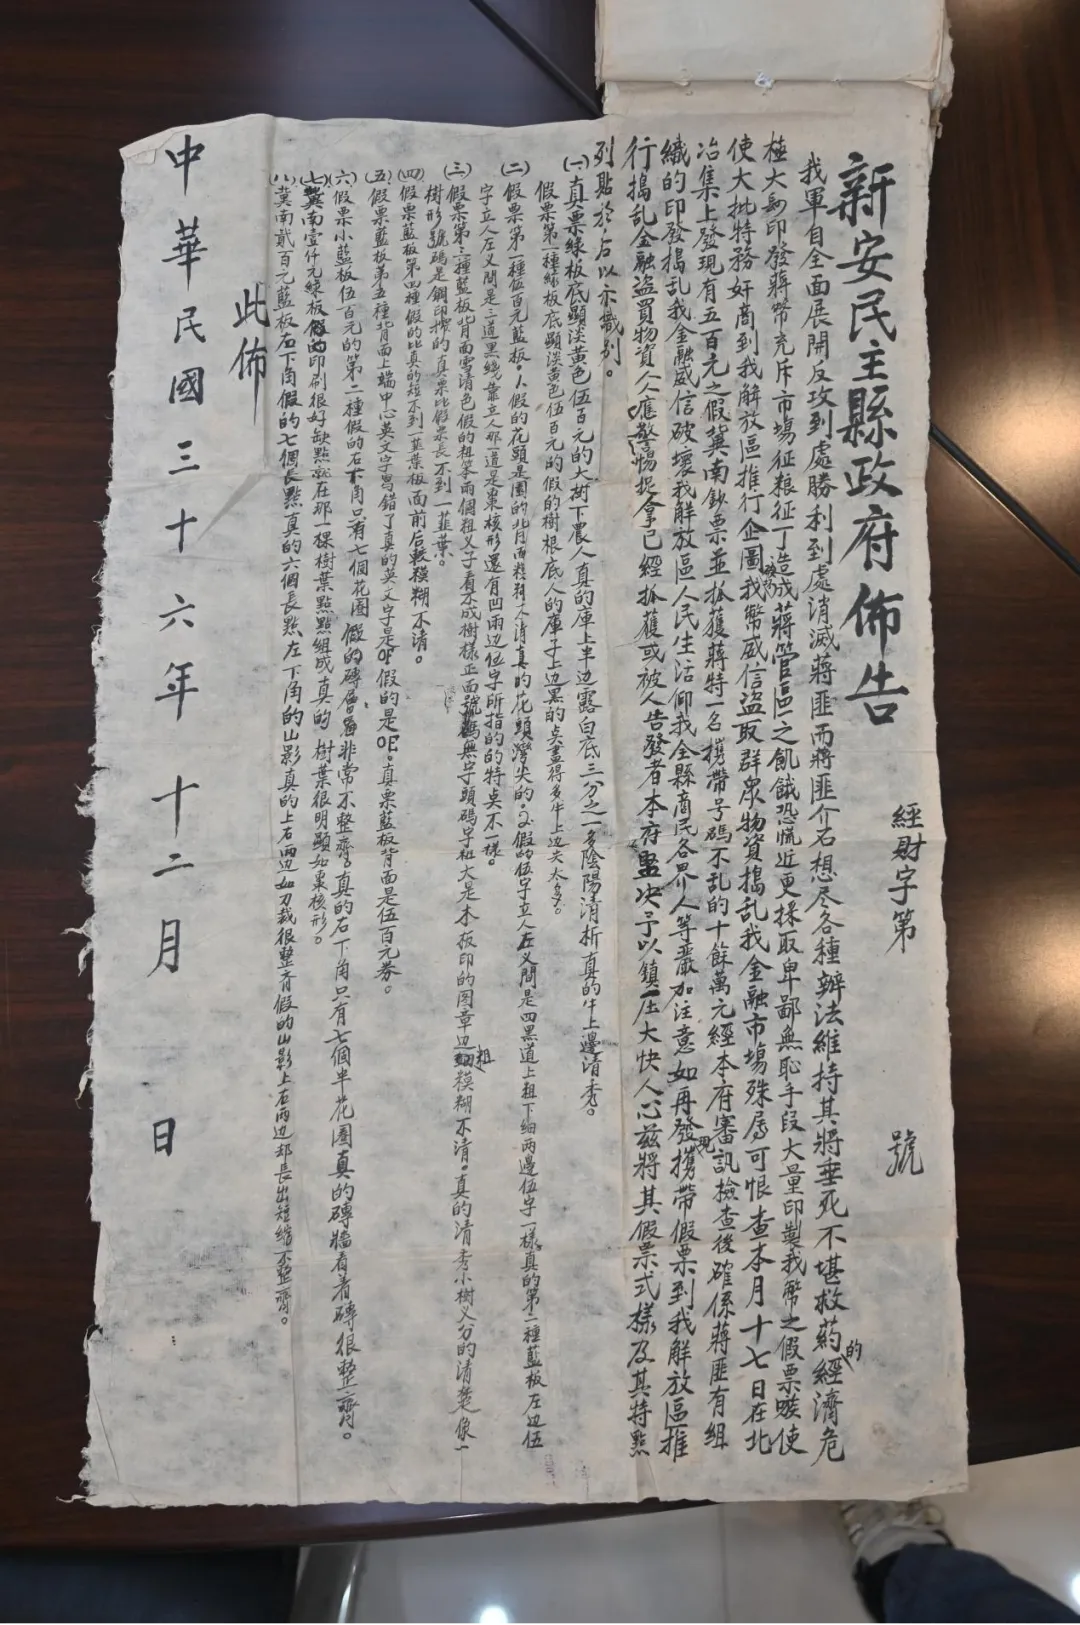 新安民主縣政府佈告
經財字第　　號
我軍自全面展開反攻到處勝利到處消滅蔣匪而蔣匪介石想尽各種辦法維持其將垂死不堪救葯的經濟危
極大刭印發蔣幣充斥市場征粮征丁造成蔣管區之飢餓恐慌近更採取卑鄙無恥手段大量印製我幣之假票嗾使
使大批特務奸商到我解放區推行企圖破坏我幣威信盜取群众物資搗乱我金融市場殊属可恨查本月十七日在北
冶集上發現有五百元之假冀南鈔票並抓獲蔣特一名携帶号碼不乱的十餘萬元經本府審訊撿查後確係蔣匪有組
織的印發搗乱我金融威信破壞我解放區人民生活仰我全縣商民各界人等嚴加注意如再發現携帶假票到我解放區推
行搗乱金融盜買物資人人應警惕捉拿已經抓獲或被人告發者本府堅决予以鎮压大快人心茲將其假票式樣及其特點
列點於后以示識別。
(一)真票綠板底顯淡黃色伍百元的大樹下農人真的庫上半边露白底三分之一多陰陽清析真的牛上邊清秀。
假票第一種綠板底顯淡黃色伍百元的假的樹根底人的庫子上边黑的点畫得多牛上边尖太多。
(二)假票第一種伍百元藍板。1.假的花頭是圓的背面糢糊不清真的花頭灣尖的。2.假的伍字立人左义間是四黑道上粗下细两邊伍字一樣真的第二種藍板左边伍
字立人左义間是三道黑綫靠立人那一道是棗核形還有凹兩边伍字所指的的特点不一樣。
(三)假票第三種藍板背面雪清色假的粗筆兩個粗义子看不成樹樣正面號碼無字頭碼字粗大是木板印的图章边粗糢糊不清。真的清秀小樹义分的清楚像一
樹形號碼是鋼印摁的真票比假票長不到一韮葉。
(四)假票藍板第四種假的比真的短不到一韮葉板面前后較糢糊不清。
(五)假票藍板第五種背面上端中心英文字写錯了真的英文字是OF假的是OE。真票藍板背面是伍百元券。
(六)假票小藍板伍百元的第二種假的右下角只有七個花圈假的磚層層非常不整齊。真的右下角只有七個半花圈真的磚牆看着磚很整齊。
(七)冀南壹仟元綠板假的印刷很好缺點就在那一棵樹葉點點組成真的樹葉很明顯如棗核形。
(八)冀南貳百元藍板右下角假的七個長點真的六個長點左下角的山影真的上右両边如刀裁很整齐假的山影上右両边却長出短縮不整齊。
此佈
中華民國三十六年十二月　　日